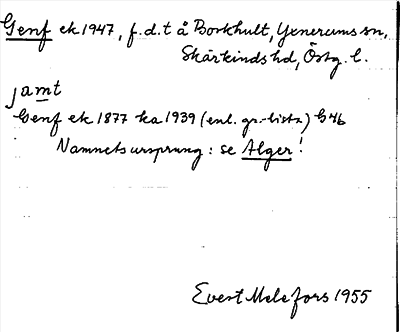 Genf ek 1947, f.d.t å Borkhult, Yxnerums sn,
Skärkinds hd, Östg. l.
jämt
Genf ek 1877 ka 1939 (enl. gr-lista) G4b
Namnets ursprung: se Alger!
Evert Melefors 1955